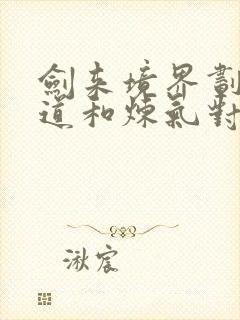 劍來境界劃
道和煉氣對
湫宸